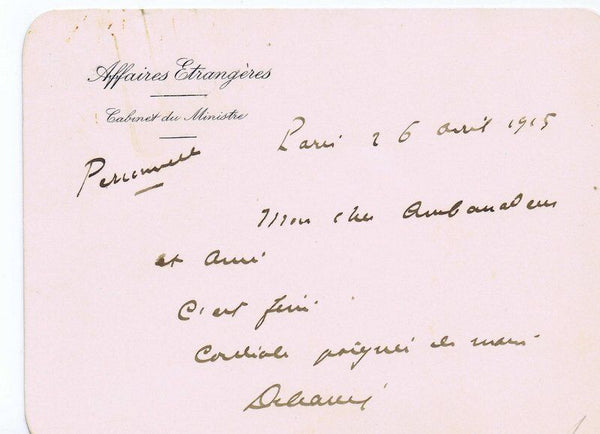 Affaires Etrangères
Cabinet du Ministre
Paris 26 avril 1915
Personnelle
Mon cher Ambassadeur
et ami
C'est fini
Cordiale poignée de main
Delcassé